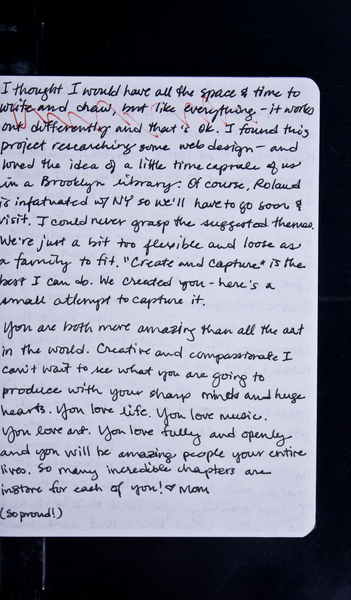 I thought I would have all the space & time to
write and draw, but like everything - it works
out differently and that's ok. I found this
project researching some web design - and
loved the idea of a little time capsule of us
in a Brooklyn library. Of course, Roland
is infatuated w/ NY so we'll have to go soon &
visit. I could never grasp the suggested themes.
We're just a bit too flexible and loose as
a family to fit. "Create and Capture" is the
best I can do. We created you - here's a
small attempt to capture it.
You are both more amazing than all the art
in the world. Creative and compassionate I
can't wait to see what you are going to
produce with your sharp minds and huge
hearts. You love life. You love music.
You love art. You love fully and openly
and you will be amazing people your entire
lives. So many incredible chapters are
instore for each of you! ♥ Mom
(so proud!)